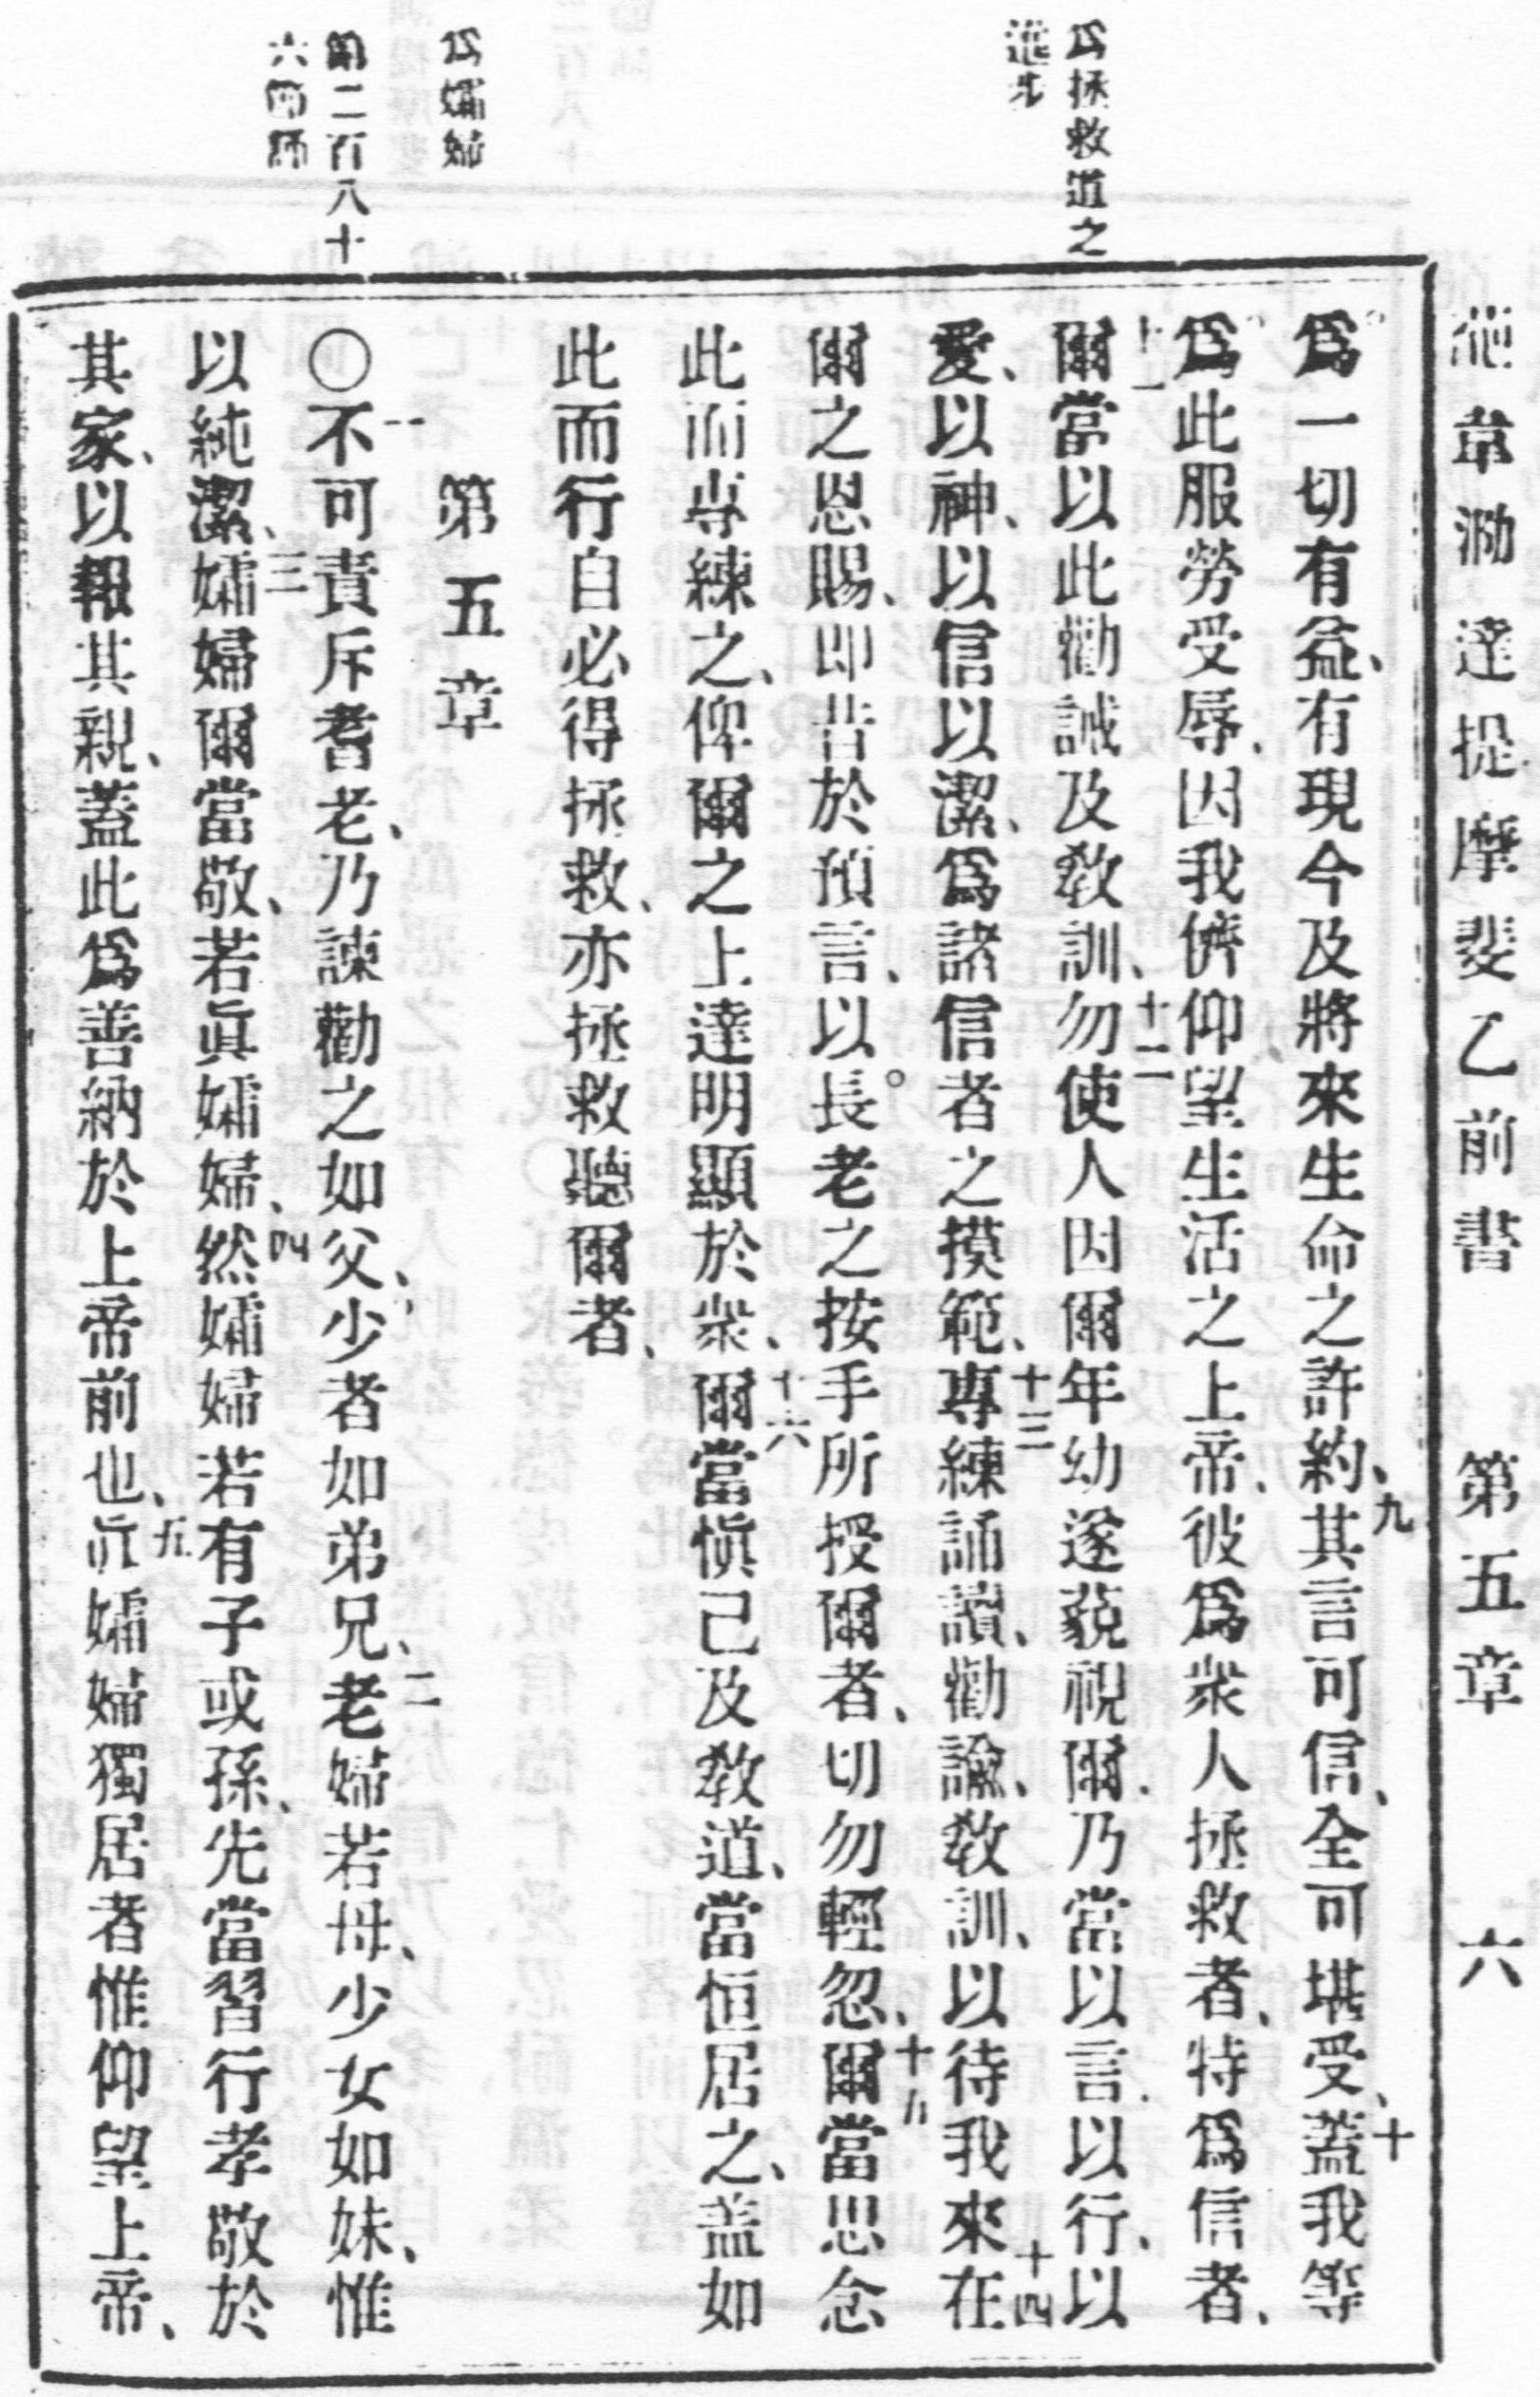 達提摩斐乙前書 第五章 六
爲拯救道之
進步
爲一切有益、有現今及將來生命之許約、九其言可信、全可堪受、十蓋我等
爲此服勞受辱、因我儕仰望生活之上帝、彼爲衆人拯救者、特爲信者、
十一爾當以此勸誡及教訓、十二勿使人因爾年幼遂藐視爾、乃當以言、以行、以
愛、以神、以信以潔、爲諸信者之摸範、十三專練誦讀、勸諭、教訓、以待我來十四在
爾之恩賜、卽昔於預言、以長老之按手所授爾者、切勿輕忽、十五爾當思念
此而專練之、俾爾之上達明顯於衆、十六爾當愼己及教道、當恒居之、盖如
此而行自必得拯救、亦拯救聽爾者、
爲孀婦
第五章
第二百八十
六節師
〇一不可責斥耆老、乃諫勸之如父、少者如弟兄、二老婦若母、少女如妹、惟
以純潔、三孀婦爾當敬、若眞孀婦、四然孀婦若有子或孫、先當習行孝敬於
其家、以報其親、蓋此爲善納於上帝前也、五眞孀婦獨居者惟仰望上帝、